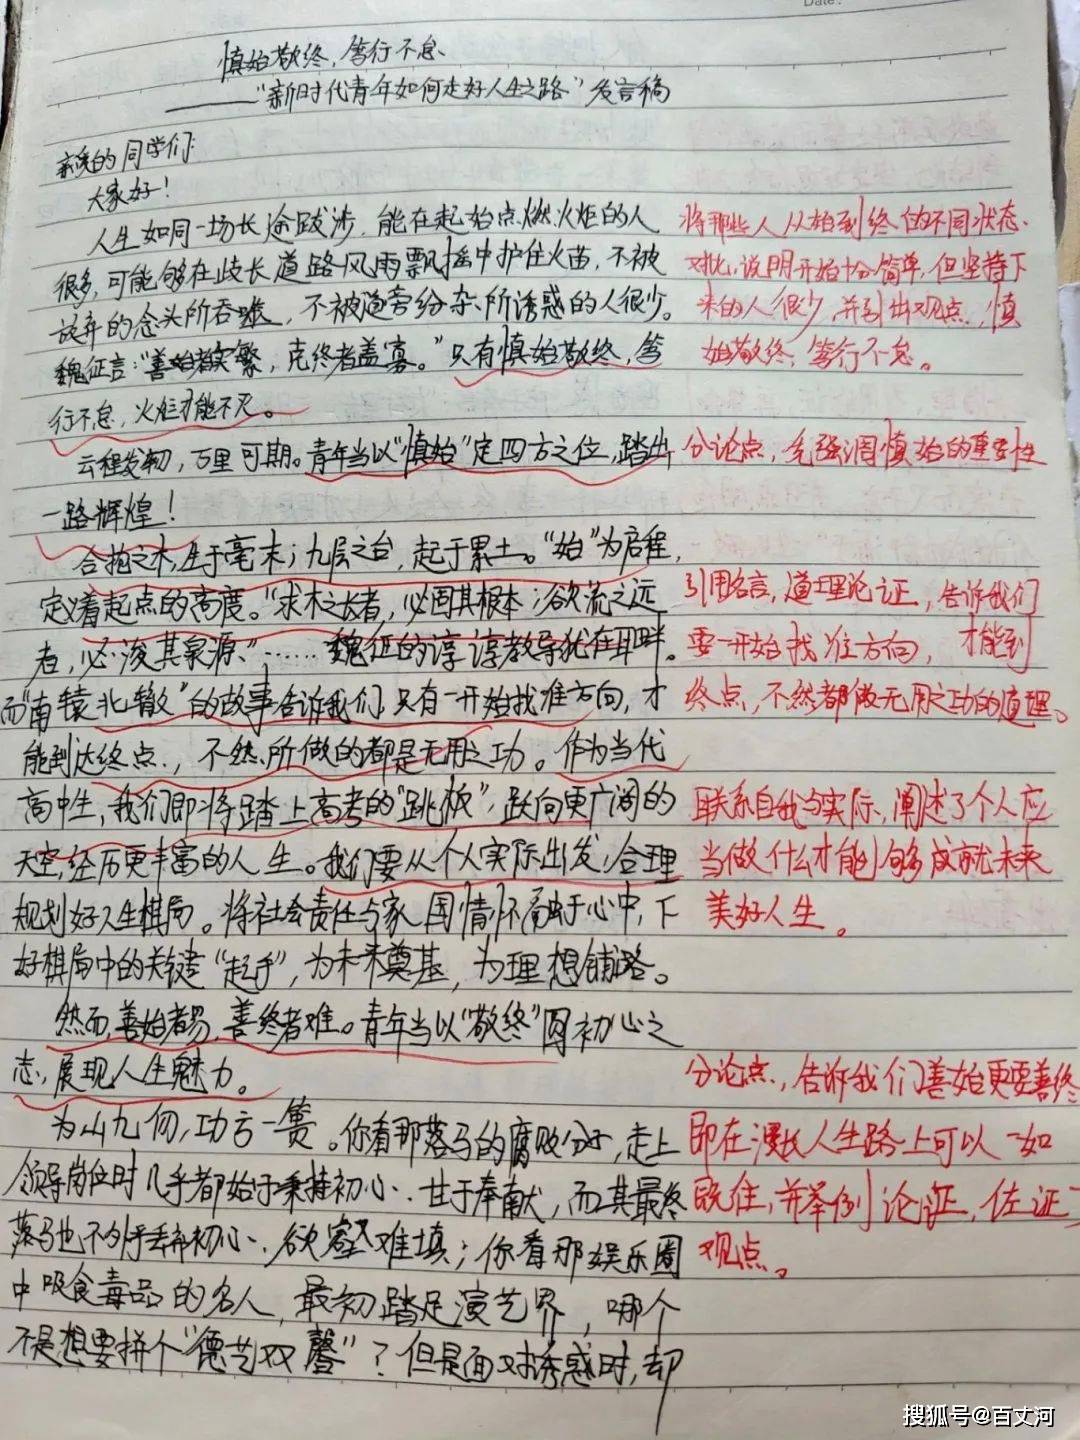 Date:
慎始敬终，笃行不怠
——“新时代青年如何走好人生之路”发言稿
亲爱的同学们：
大家好！
人生如同一场长途跋涉，能在起始点燃火炬的人
将那些人从始到终的不同状态
很多，可能够在歧长道路风雨飘摇中护住火苗，不被
对比，说明开始十分简单，但坚持下
放弃的念头所吞噬，不被道旁纷杂所诱惑的人很少。
来的人很少，并引出观点，慎
魏征言：“善始者实繁，克终者盖寡。”只有慎始敬终，笃
始敬终，笃行不怠。
行不怠，火炬才能不灭。
云程发轫，万里可期。青年当以“慎始”定四方之位，踏出
分论点，先强调慎始的重要性
一路辉煌！
合抱之木，生于毫末；九层之台，起于累土。“始”为启程，
定义着起点的高度。“求木之长者，必固其根本；欲流之远
引用名言，道理论证，告诉我们
者，必浚其泉源”……魏征的谆谆教导犹在耳畔。
要一开始找准方向，才能到
而“南辕北辙”的故事告诉我们只有一开始找准方向，才
终点，不然都做无用之功的道理。
能到达终点，不然所做的都是无用之功。作为当代
高中生，我们即将踏上高考的“跳板”，跃向更广阔的
联系自我与实际，阐述了个人应
天空，经历更丰富的人生。我们要从个人实际出发，合理
当做什么才能够成就未来
规划好人生棋局。将社会责任与家国情怀融于心中，下
美好人生。
好棋局中的关键“起手”，为未来奠基，为理想铺路。
然而，善始者易，善终者难。青年当以“敬终”圆初心之
志，展现人生魅力。
分论点，告诉我们善始更要善终
为山九仞，功亏一篑。你看那落马的腐败分子，走上
即在漫长人生路上可以一如
领导岗位时几乎都始于秉持初心、甘于奉献，而其最终
既往，并举例论证，佐证了
落马也不外乎丢弃初心、欲壑难填；你看那娱乐圈
观点。
中吸食毒品的名人，最初踏足演艺界，哪个
不是想要拼个“德艺双馨”？但是面对诱惑时，却
搜狐号@百丈河